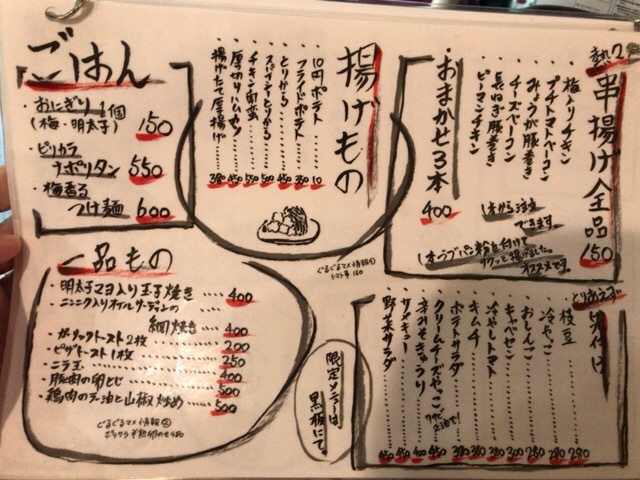 熱々
串揚げ全品
150
梅入りチキン
プチトマトベーコン
みょうが豚巻き
チーズベーコン
長ねぎ豚巻き
ピーマンチキン
・おまかせ3本
400
1本から注文
できます。
揚げもの
10円ポテト 10
フライドポテト 350
とりから 450
スパイシーとりから 500
チキン南蛮 550
厚切りハムカツ 450
揚げたて厚揚げ 380
ぐるぐるマメ情報①
トマト串 150
ごはん
・おにぎり1個
(梅・明太子) 150
・ピリカラ
ナポリタン 550
・梅香る
つけ麺 600
とりあえず
枝豆 290
冷やっこ 290
おしんこ 250
キャベセン 300
冷やしトマト 300
キムチ 350
ポテトサラダ 380
クリームチーズやっこ 450
辛みそきゅうり 400
野菜サラダ 450
限定メニューは
黒板にて。
一品もの
・明太子マヨ入り玉子焼き 400
・ニンニク入りオイルサーディンの
網焼き 400
・ガーリックトースト2枚 200
・ピザトースト1枚 250
・ニラ玉 400
・豚肉の卵とじ 500
・鶏肉のラー油と山椒炒め 500
ぐるぐるマメ情報②